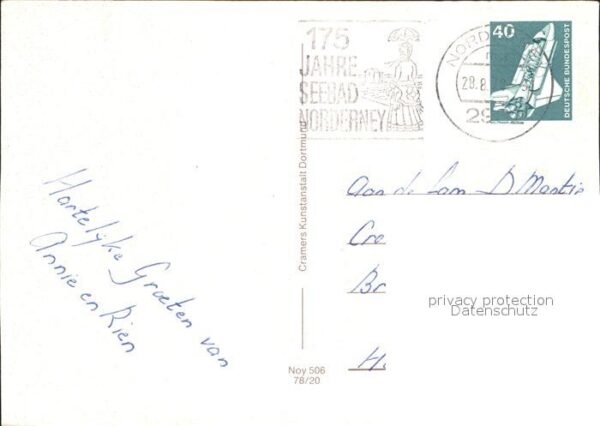 175
JAHRE
SEEBAD
NORDERNEY
28.8.
29
40
DEUTSCHE BUNDESPOST
Cramers Kunstanstalt Dortmund
Hartelijke Groeten van
Annie en Rien
Aan de Fam D Martin
Cre
Br
H.
privacy protection
Datenschutz
Noy 506
78/20